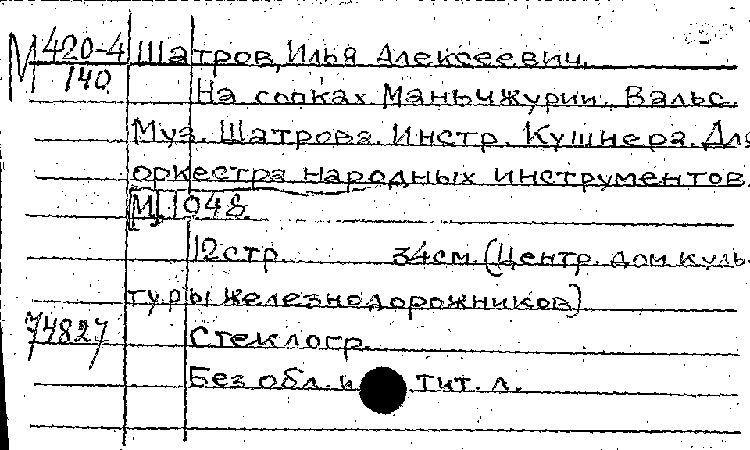 М 420-4 Шатров, Илья Алексеевич.
140 На сопках Маньчжурии. Вальс.
Муз. Шатрова. Инстр. Кушнера. Для
оркестра народных инструментов.
[М], 1948.
12 стр. 34 см. (Центр. дом куль-
туры железнодорожников)
74827 Стеклогр.
Без обл. и тит. л.